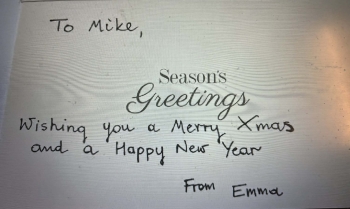 To Mike,
Season's
Greetings
Wishing you a Merry Xmas
and a Happy New Year
From Emma